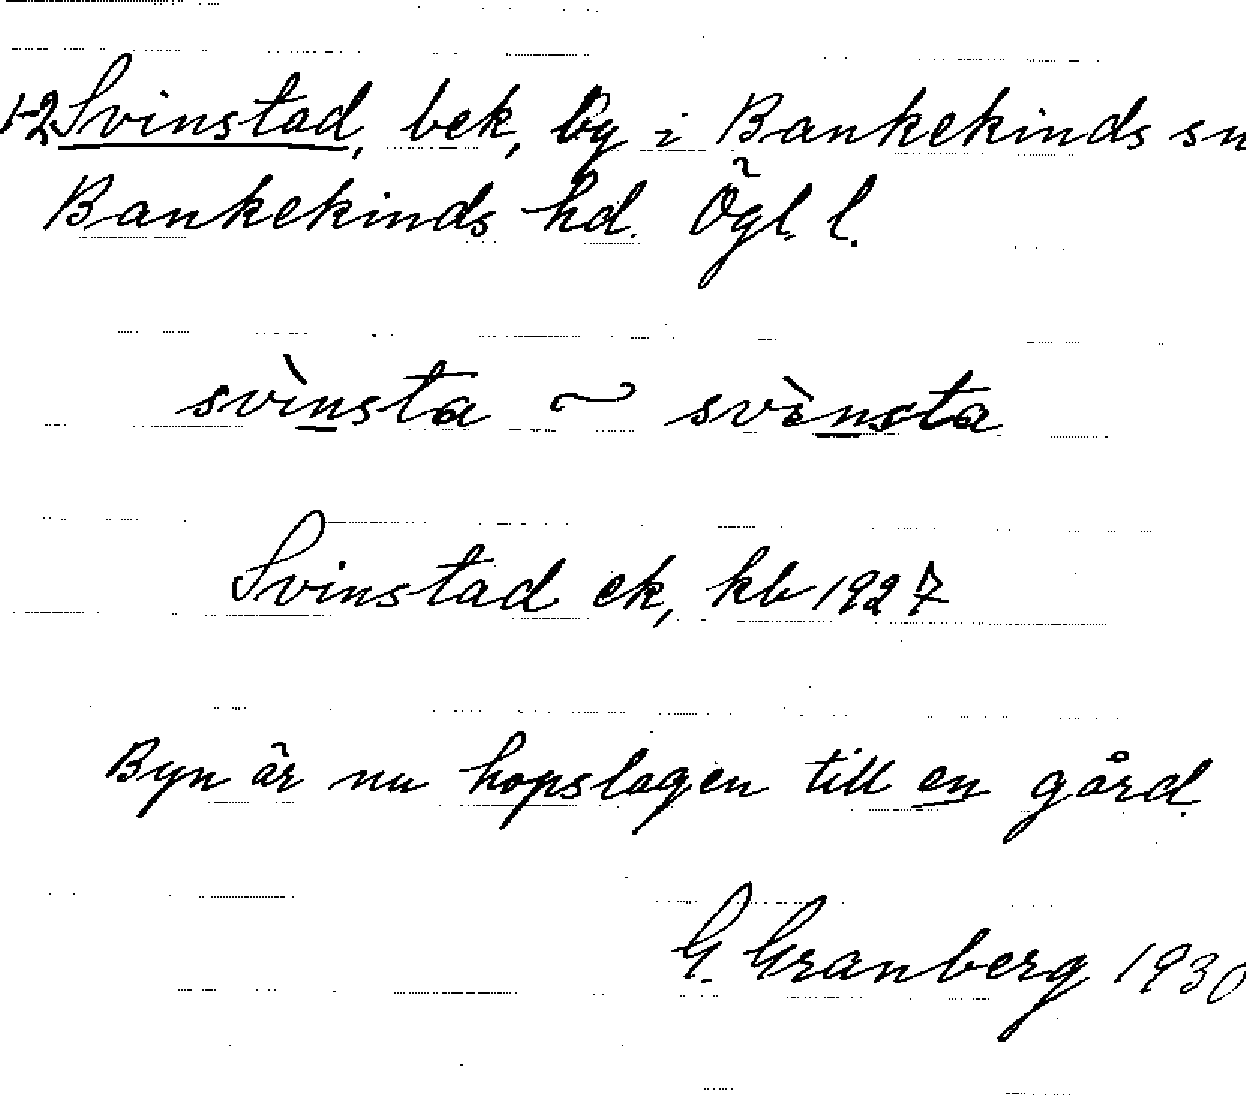 1-2 Svinstad, bek, by i Bankekinds sn
Bankekinds hd. Ögl. l.
svìnsta ~ svènsta
Svinstad ek, kb 1927
Byn är nu hopslagen till en gård.
G. Granberg 1930